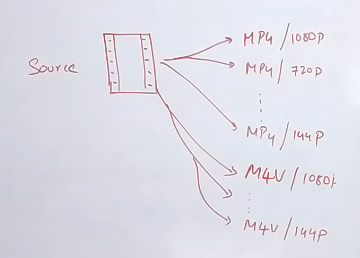 Source
MP4/1080p
MP4/720p
MP4/144p
M4V/1080i
M4V/144p